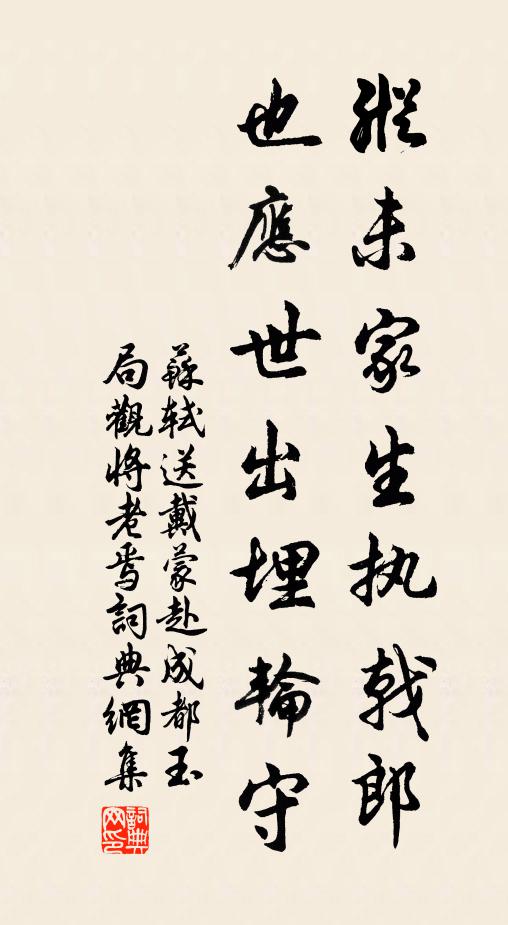 縱未家生执戟郎
也應世出埋輪守
蘇軾送戴蒙赴成都玉
局觀將老焉詞典網集
詞典
网印